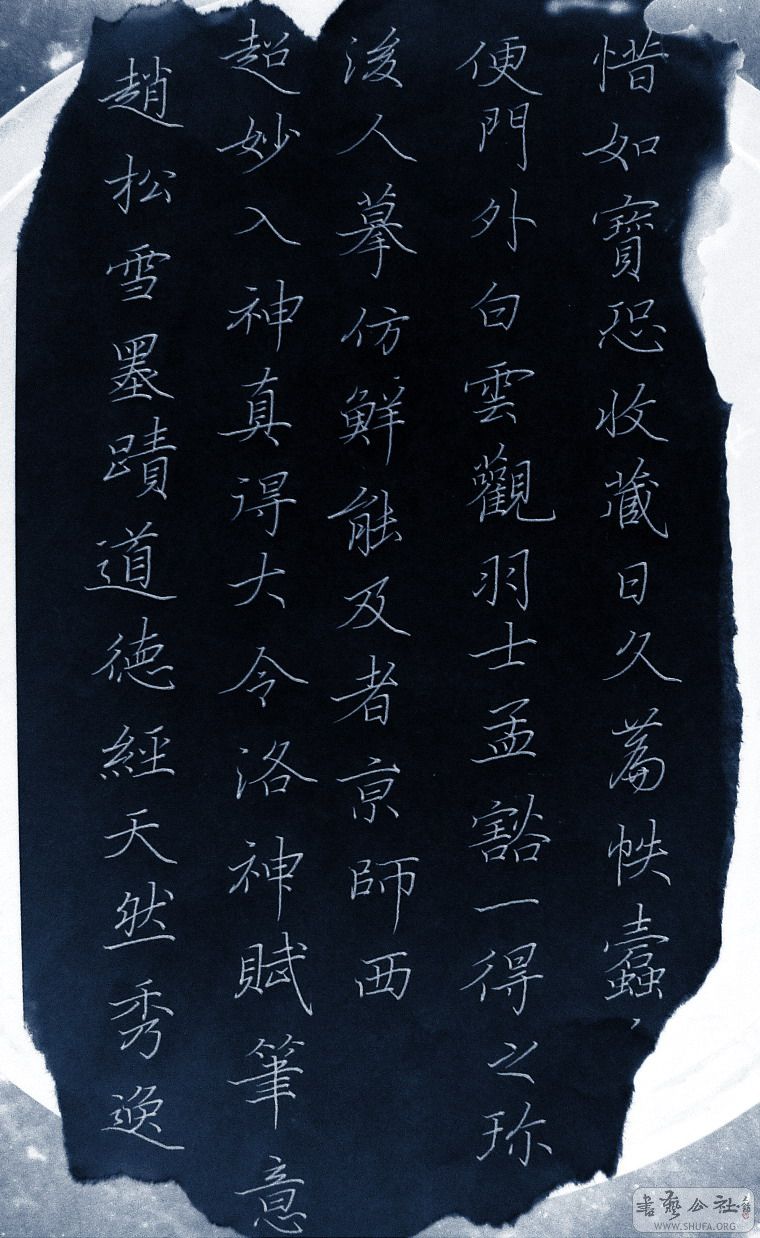 趙松雪墨蹟道德經天然秀逸
超妙入神真得大令洛神賦筆意
後人摹仿鮮能及者亰師西
便門外白雲觀羽士孟豁一得之珎
惜如寶恐收藏日久篇帙蠹
書藝公社
WWW.SHUFA.ORG